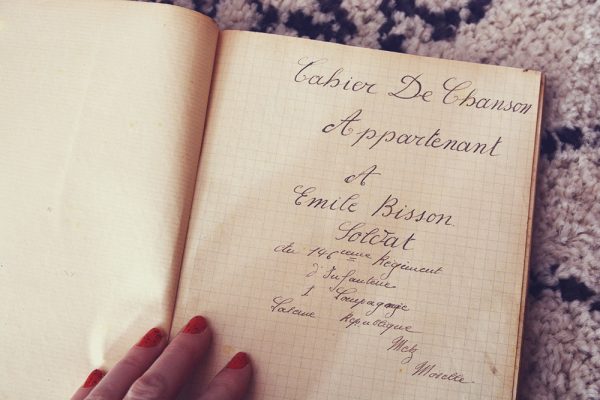 Cahier De Chanson
Appartenant
A
Emile Bisson.
Soldat
du 146eme Régiment
d'Infanterie
1 Compagnie
Caserne Republique
Metz
Moselle